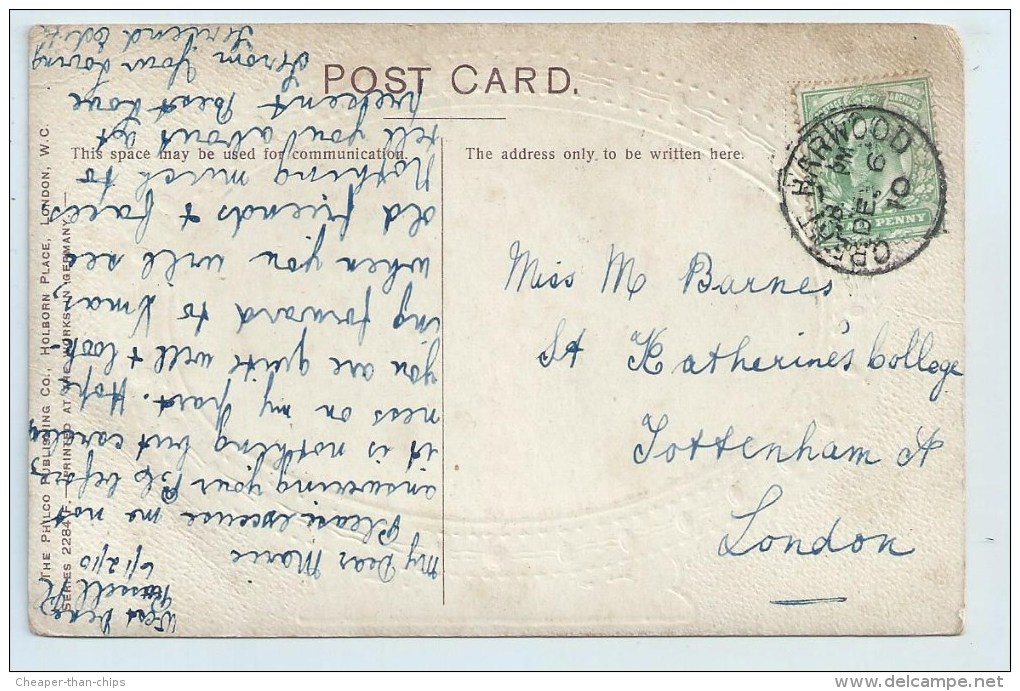 POST CARD.
This space may be used for communication.
The address only to be written here.
THE PHILCO PUBLISHING CO., HOLBORN PLACE, LONDON, W.C.
SERIES 2284 F. — PRINTED AT THE WORKS IN GERMANY.
GREAT HARWOOD
PM
DE 6
10
PENNY
Miss M Barnes
St Katherine's College
Tottenham
London
West
6/12/10
My Dear Marie
Please excuse me not
answering your P.C. before
it is nothing but careless
ness on my part. Hope
you are quite well & look-
ing forward to Xmas
when you will see
old friends & faces
Nothing much to
tell you about at
present Best Love
From Your Loving
Friend Edith
Cheaper-than-chips
www.delcampe.net